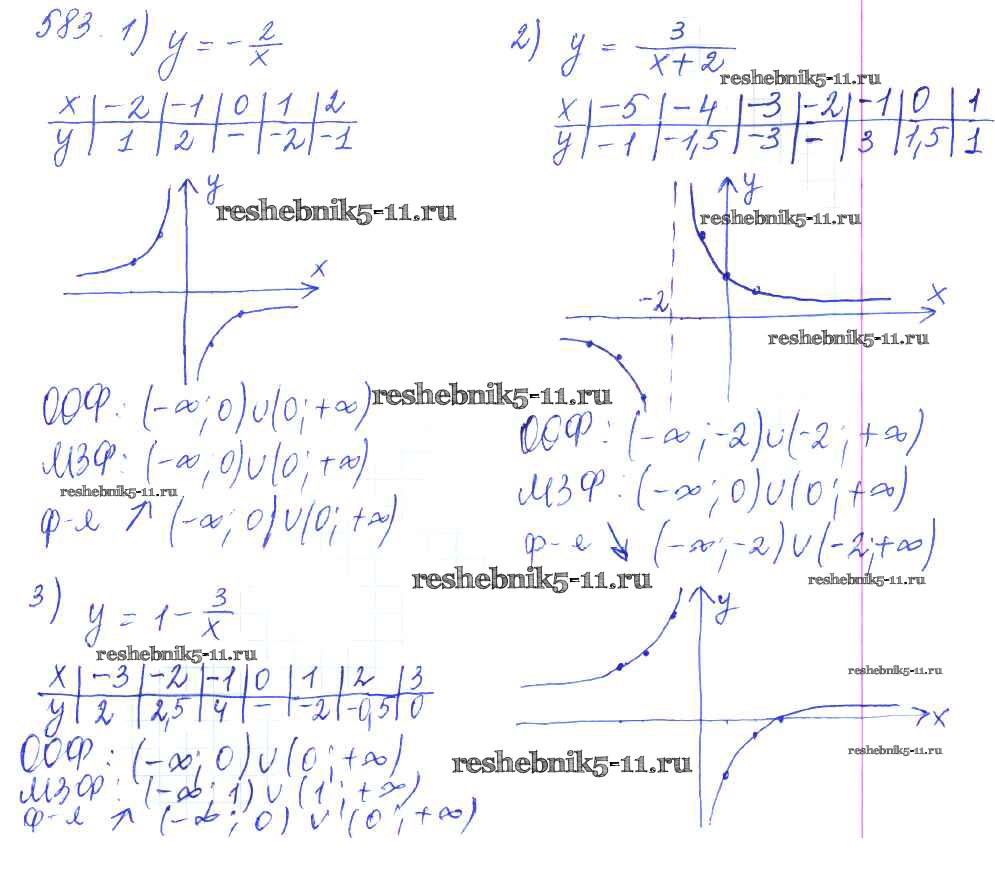 583. 1) y = - 2/x
x | -2 | -1 | 0 | 1 | 2
y | 1 | 2 | - | -2 | -1
y
reshebnik5-11.ru
x
ООФ: (-∞; 0)∪(0; +∞)
reshebnik5-11.ru
МЗФ: (-∞; 0)∪(0; +∞)
reshebnik5-11.ru
ф-я ↑ (-∞; 0)∪(0; +∞)
2) y = 3/(x+2)
reshebnik5-11.ru
x | -5 | -4 | -3 | -2 | -1 | 0 | 1
y | -1 | -1,5 | -3 | - | 3 | 1,5 | 1
y
reshebnik5-11.ru
-2
x
reshebnik5-11.ru
ООФ: (-∞; -2)∪(-2; +∞)
МЗФ: (-∞; 0)∪(0; +∞)
ф-я ↘ (-∞; -2)∪(-2; +∞)
reshebnik5-11.ru
reshebnik5-11.ru
3) y = 1 - 3/x
reshebnik5-11.ru
x | -3 | -2 | -1 | 0 | 1 | 2 | 3
y | 2 | 2,5 | 4 | - | -2 | -0,5 | 0
ООФ: (-∞; 0)∪(0; +∞)
МЗФ: (-∞; 1)∪(1; +∞)
ф-я ↑ (-∞; 0)∪(0; +∞)
y
reshebnik5-11.ru
x
reshebnik5-11.ru
reshebnik5-11.ru